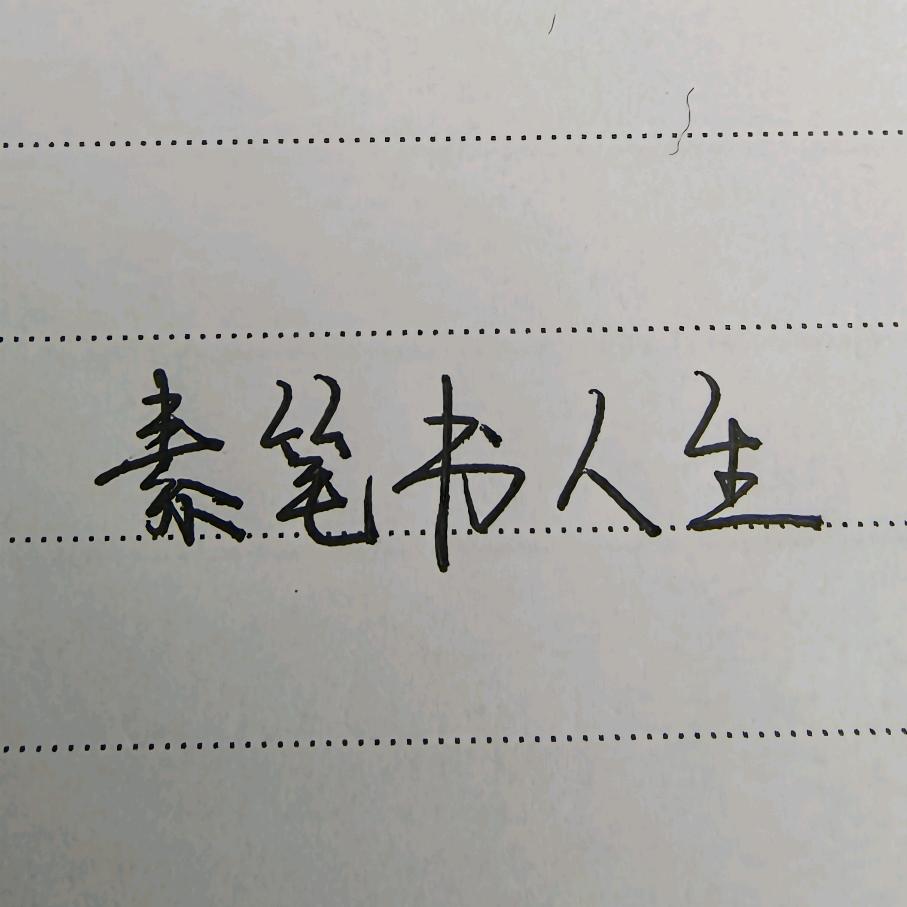 素笔书人生